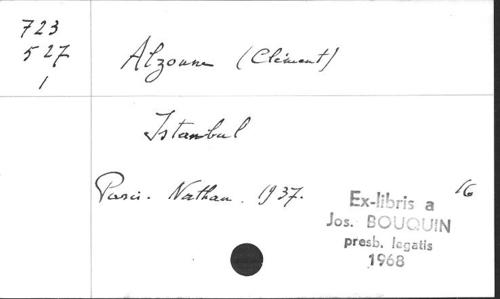 723
527
1
Alzonne (Clément)
Istanbul
Paris. Nathan. 1937.
16
Ex-libris a
Jos. BOUQUIN
presb. legatis
1968